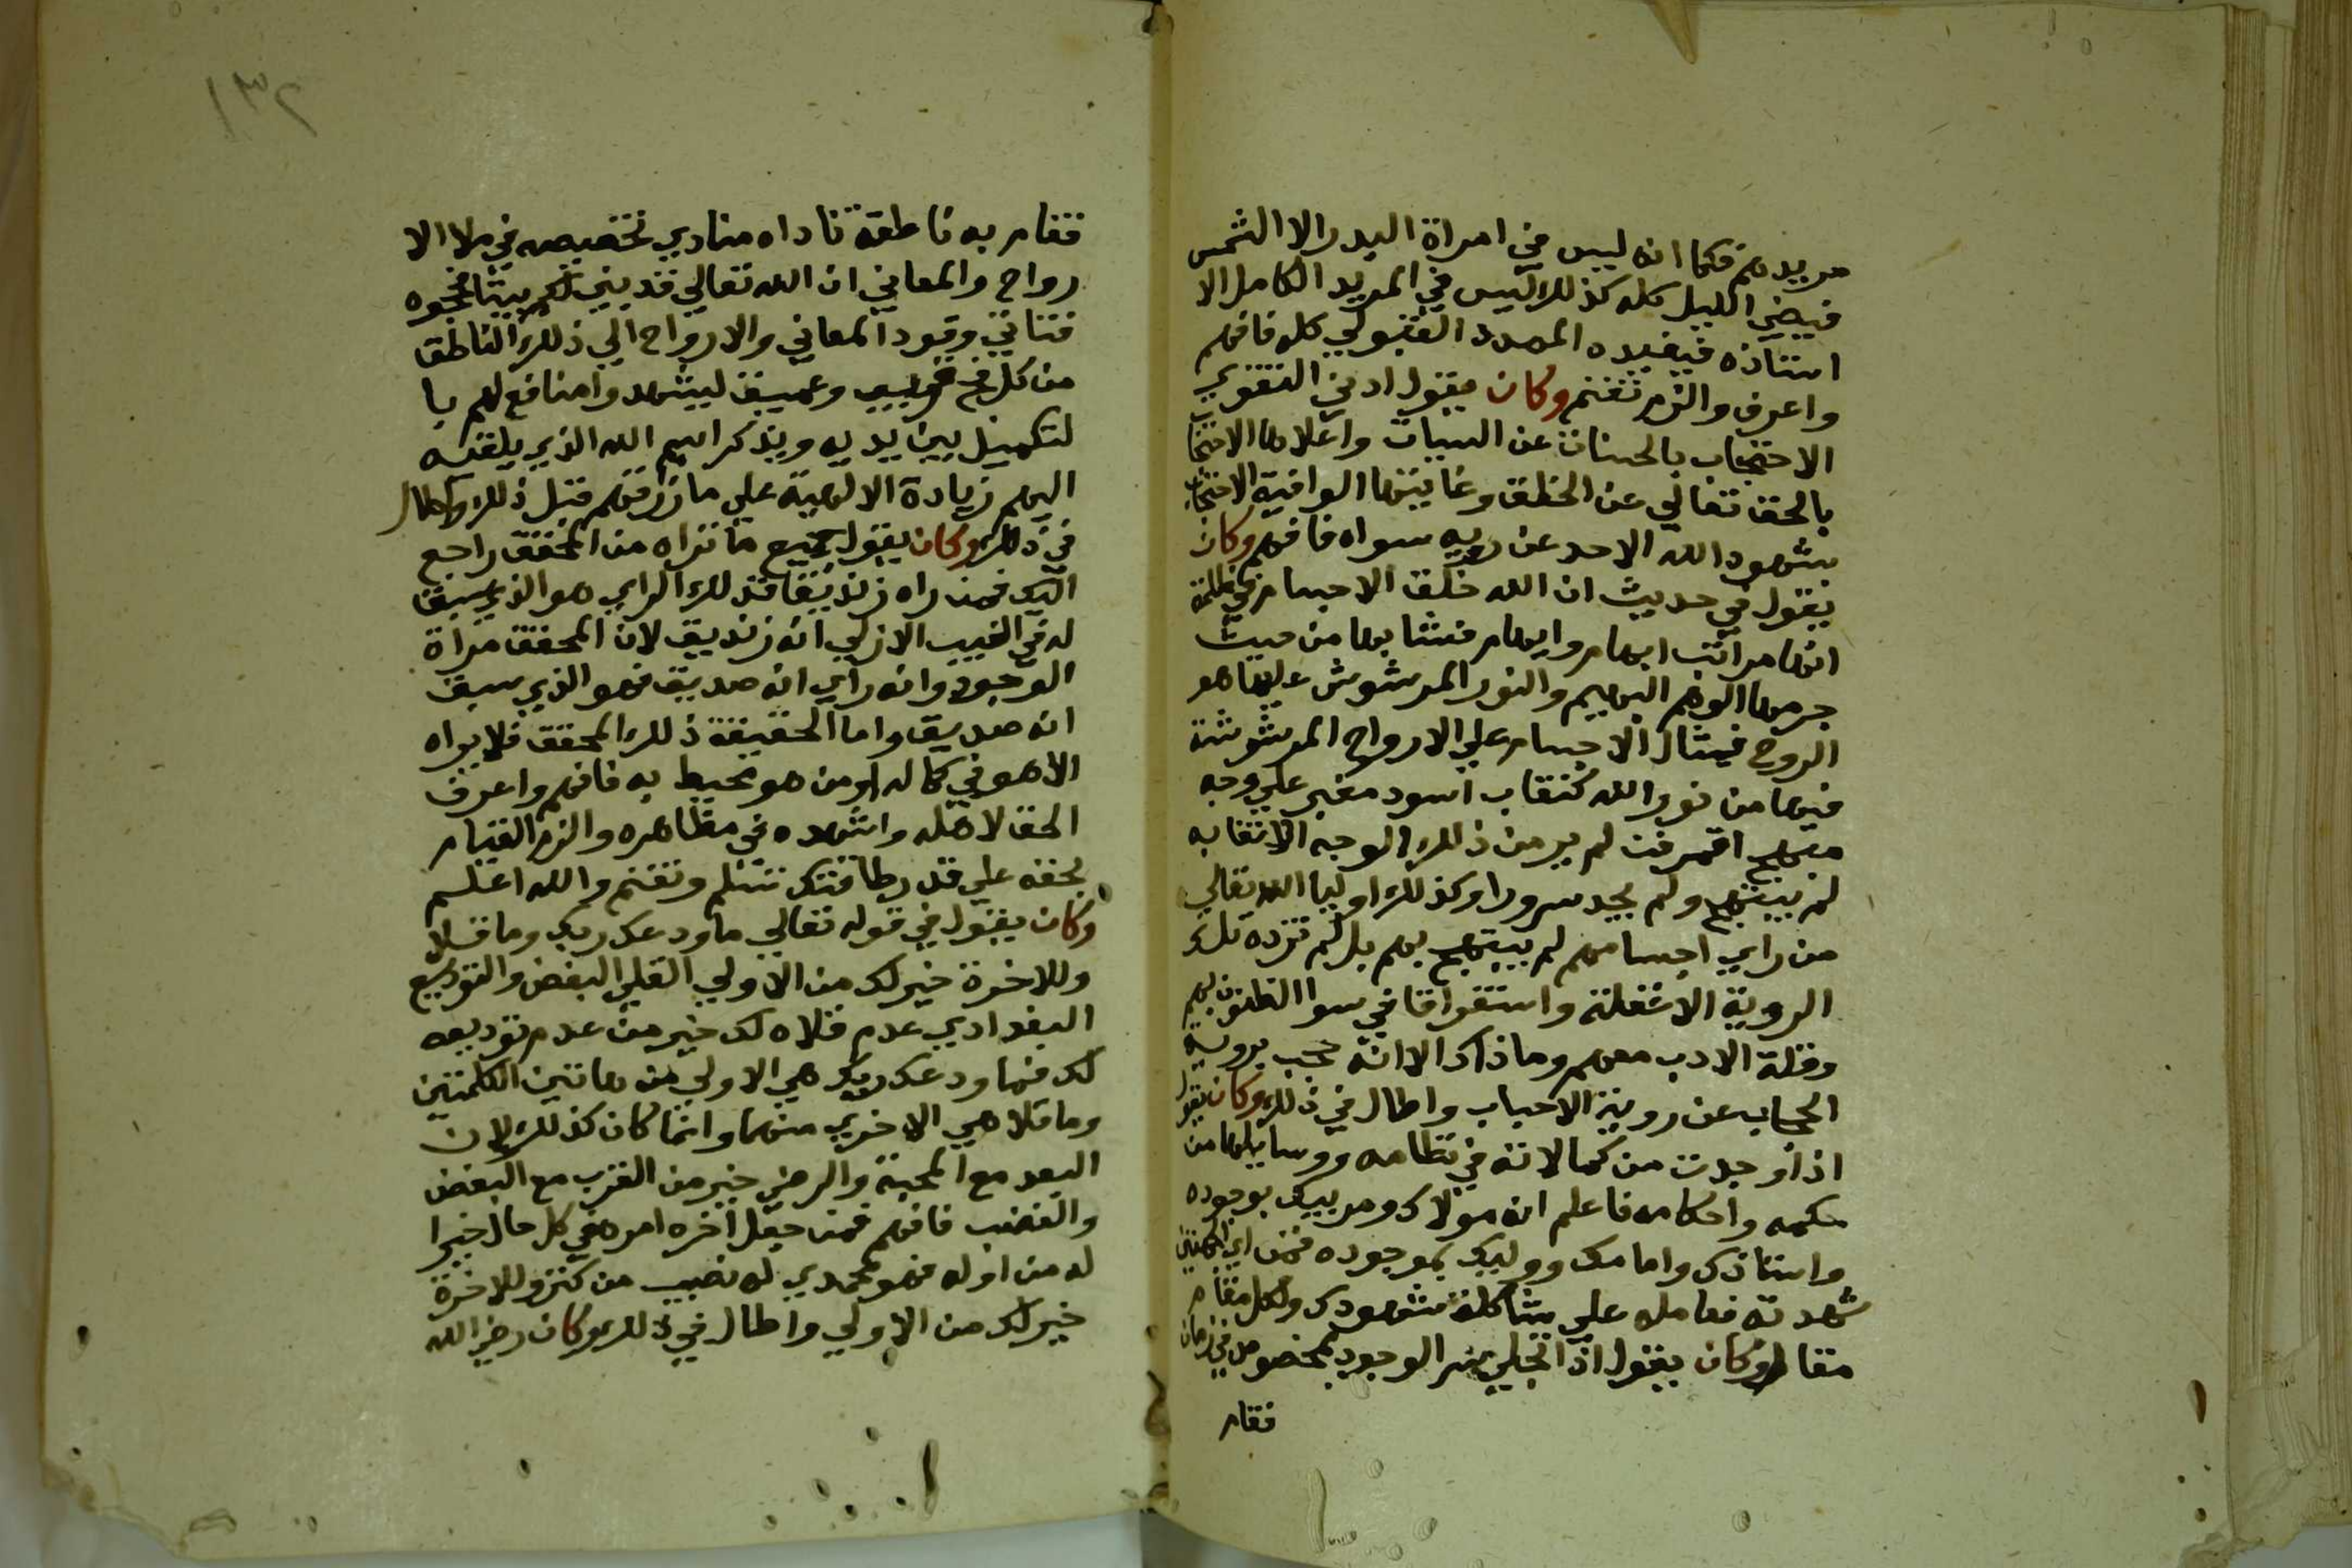 مريدهم فكما انه ليس في امراة البدر الا الشمس
فيضي الليل كله كذلك ليس في المريد الكامل الا
استاذه فيفيده المدد القبولي كله فافهم
واعرف والزم تغنم وكان يقول ادني التقوي
الاحتجاب بالحسنات عن السيات واعلاها الاحتجاب
بالحق تعالي عن الخلق وغايتها الوافية الاحتجاب
بشهود الله الاحد عن رويه سواه فافهم وكان
يقول في حديث ان الله خلق الاجسام في ظلمة
انها مراتب ابهام وايهام فتشابها من حيث
جرمها الوهم البهيم والنور المرشوش عليها هو
الروح فمثال الاجسام علي الارواح المرشوشة
فيها من نور الله كنقاب اسود مغبر علي وجه
مبهج اقمر فمن لم ير من ذلك الوجه الا نقابه
لم يبتهج ولم يجد سرورا وكذلك اوليا الله تعالي
من راي اجسامهم لم يبتهج بهم بل لم تزده تلك
الروية الا غفلة واستغراقا في سوا الظنون بهم
وقلة الادب معهم وما ذاك الا انه حجب بروية
الحجاب عن روية الاحباب واطال في ذلك وكان يقول
اذا وجدت من كمالاته في نظامه ووسايلها من
حكمه واحكامه فاعلم انه مولاك ومربيك بوجوده
واستاذك وامامك ووليك بموجوده فمن اي الجهتين
شهدته فعامله علي شاكلة مشهودك ولكل مقام
مقال وكان يقول اذا تجلي سر الوجود بمخصوص في زمان
فقام
١٣٢
فقام به ناطقة ناداه منادي تخصيصه في ملا الا
رواح والمعاني ان الله تعالي قد بني لكم بيتا فحجوه
فتاتي وفود المعاني والارواح الي ذلك الناطق
من كل فج قريب وعميق ليشهدوا منافع لهم با
لتكميل بين يديه ويذكر اسم الله الذي يلقنه
اليهم زيادة الالهية علي ما رزقهم قبل ذلك واطال
في ذلك وكان يقول جميع ما تراه من المحقق راجع
اليك فمن راه زنديقا فذلك الراي هو الذي سبق
له في الغيب الازلي انه زنديق لان المحقق مراة
الوجود وانه راي انه صديق فهو الذي سبق
انه صديق واما الحقيقة ذلك المحقق فلا يراه
الا هو في كماله او من هو محيط به فافهم واعرف
الحق لاهله واشهده في مظاهره والزم القيام
بحقه علي قدر طاقتك تسلم وتغنم والله اعلم
وكان يقول في قوله تعالي ما ودعك ربك وما قلا
وللاخرة خير لك من الاولي القلي البغض والتوديع
البعد ادي عدم قلاه لك خير من عدم توديعه
لك فما ودعك ربك هي الاولي من هاتين الكلمتين
وما قلا هي الاخري منهما وانما كان كذلك لان
البعد مع المحبة والرضي خير من القرب مع البغض
والغضب فافهم فمن جعل اخره امره في كل حال خيرا
له من اوله فهو محمدي له نصيب من كنز وللاخرة
خير لك من الاولي واطال في ذلك وكان رضي الله